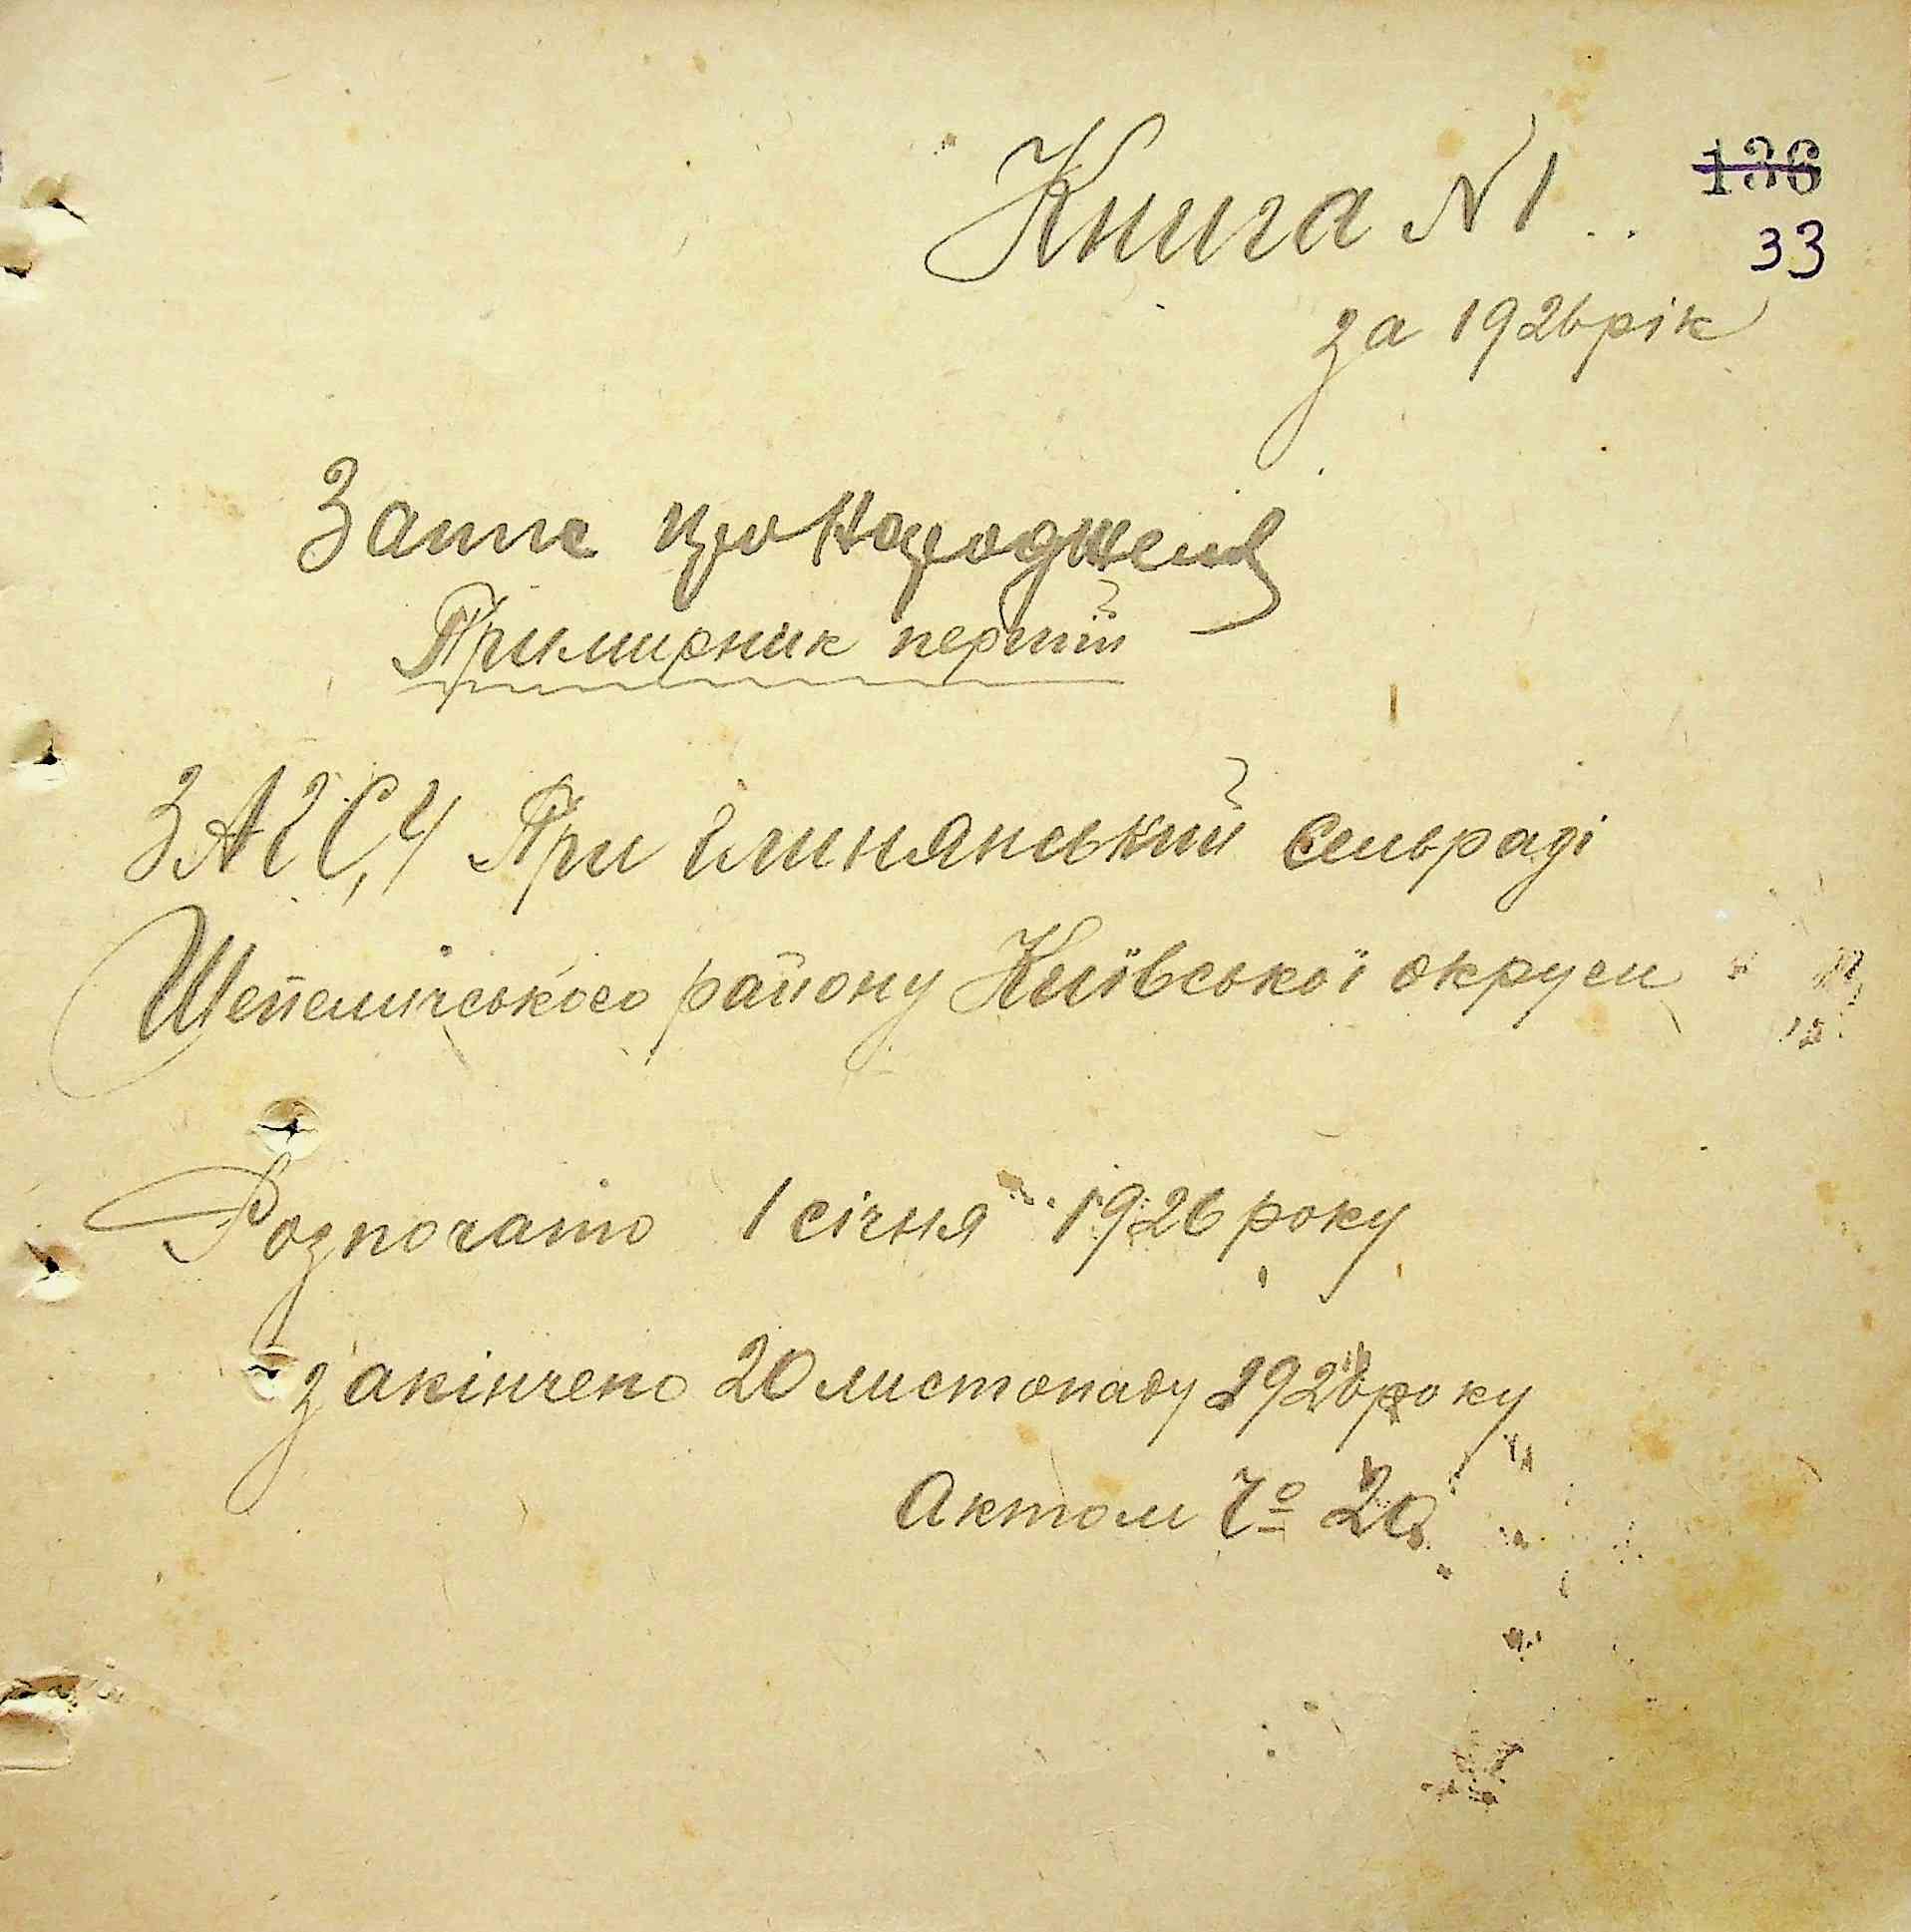 Книга N 1
136
33
за 1926 рік
Запис про Народженя
Примирник перший
ЗАГС,У При Глинянський Сельраді
Шепеличського району Київської округи
Розпочато 1 січня 1926 року
закінчено 20 листопаду 1926 року
Актом Ч<u>о</u> 20